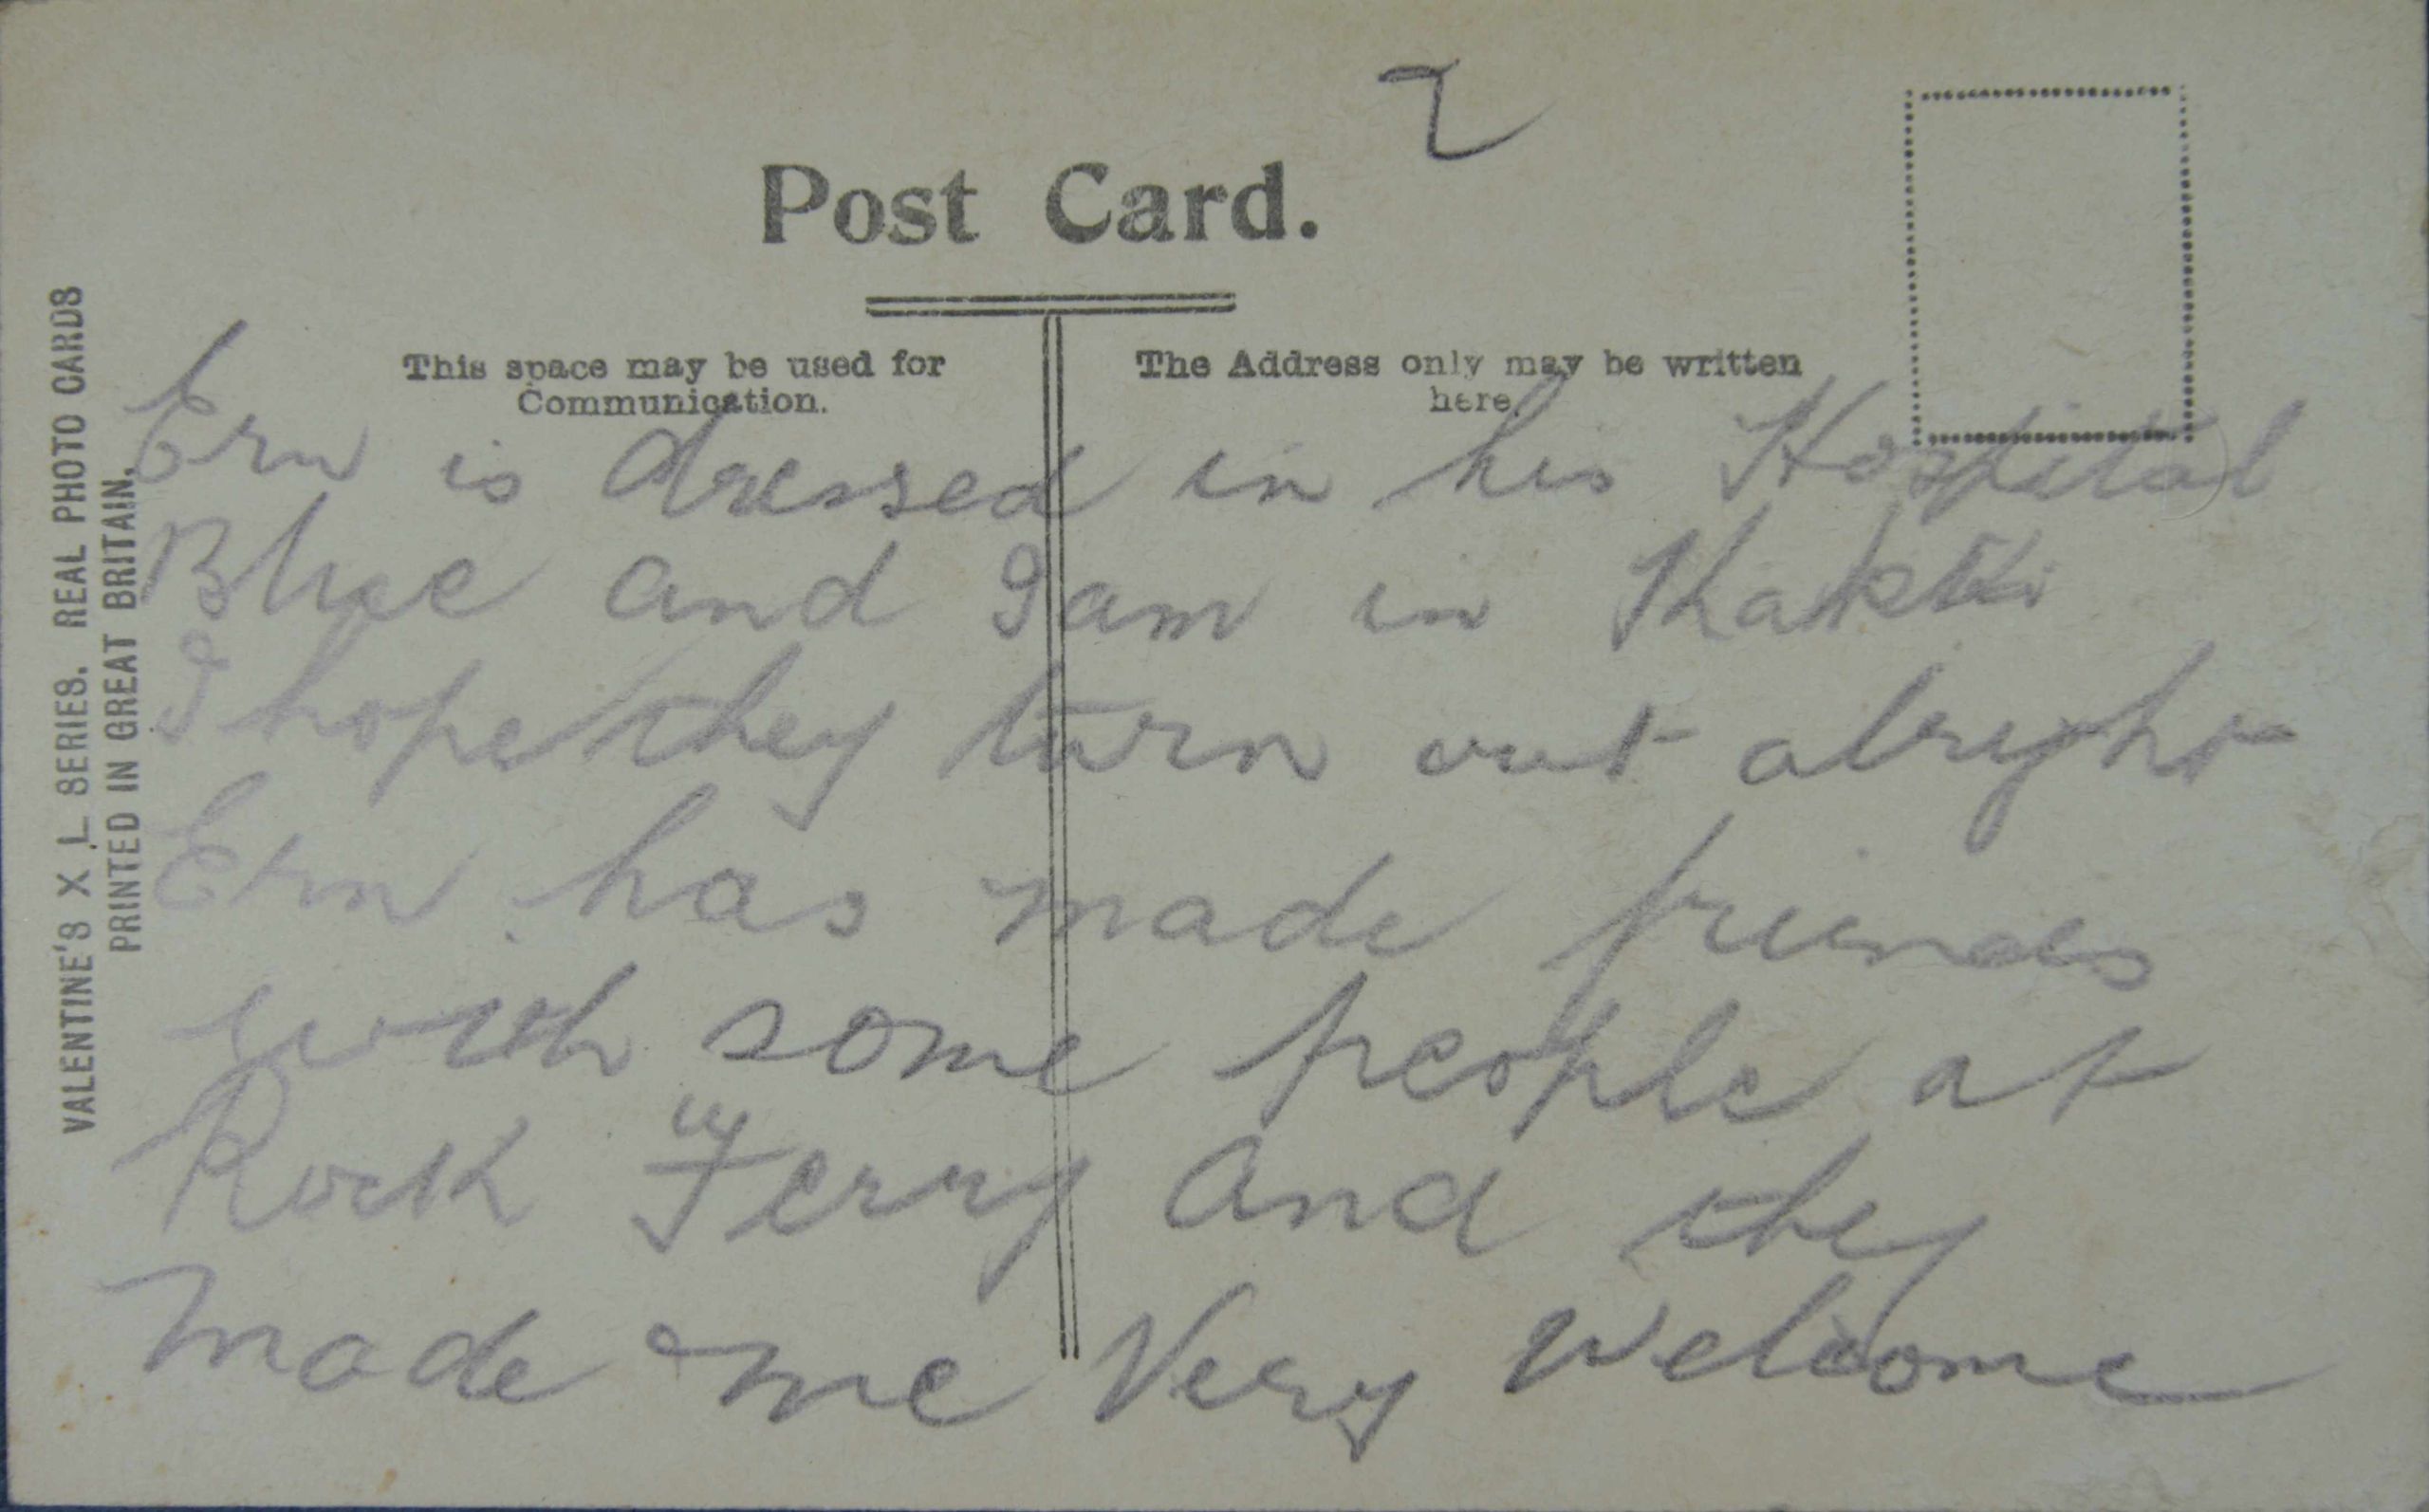 2
Post Card.
This space may be used for
Communication.
The Address only may be written
here.
VALENTINE'S X L SERIES. REAL PHOTO CARDS
PRINTED IN GREAT BRITAIN.
Ern is dressed in his Hospital
Blue and I am in Khakki
I hope they turn out alright
Ern has made friends
with some people at
Rock Ferry and they
made me Very welcome